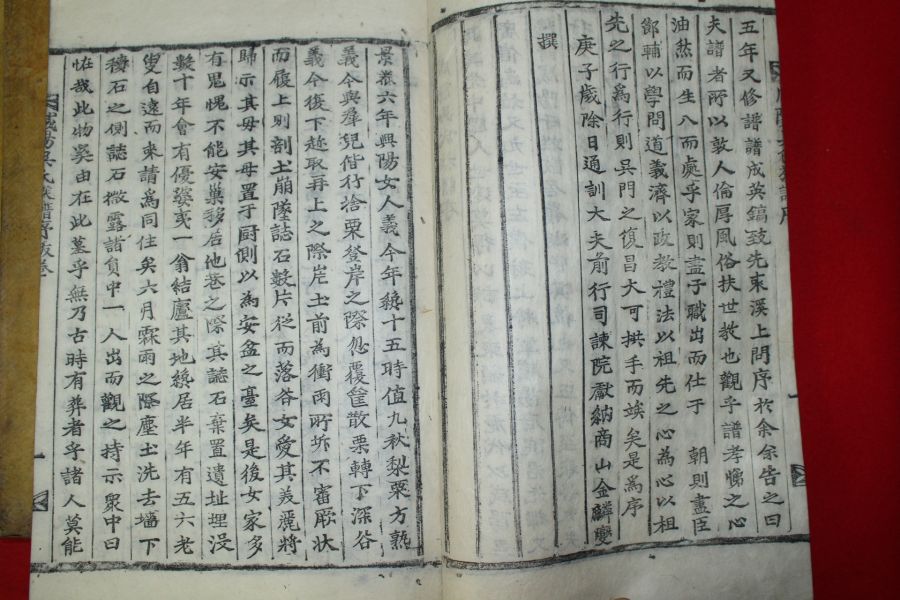 五年又修譜譜成英鎬致先東溪上問序於余余告之曰
夫譜者所以敦人倫厚風俗扶世教也觀乎譜孝悌之心
油然而生入而處乎家則盡子職出而仕于 朝則盡臣
鄒輔以學問道義濟以政教禮法以祖先之心爲心以祖
先之行爲行則吳門之復昌大可拱手而竢矣是爲序
庚子歲除日通訓大夫前行司諫院獻納商山金鱗燮
撰
景泰六年興陽女人義今年纔十五時值九秋梨栗方熟
義今與羣兒偕行捨栗登岸之際忽覆筐散栗轉下深谷
義今復下趁取再上之際崖土前為衝雨所坼不審厥狀
而履上則剖土崩墜誌石數片從而落谷女愛其美麗將
歸示其母其母置于厨側以為安盆之臺矣是後女家多
有鬼愧不能安巢移居他巷之際其誌石棄置遺址埋沒
數十年會有優婆夷一翁結廬其地纔居半年有五六老
叟自遠而來請為同住矣六月霖雨之際塵土洗去墻下
積石之側誌石微露諸負中一人出而觀之持示衆中曰
怪哉此物奚由在此墓乎無乃古時有葬者乎諸人莫能